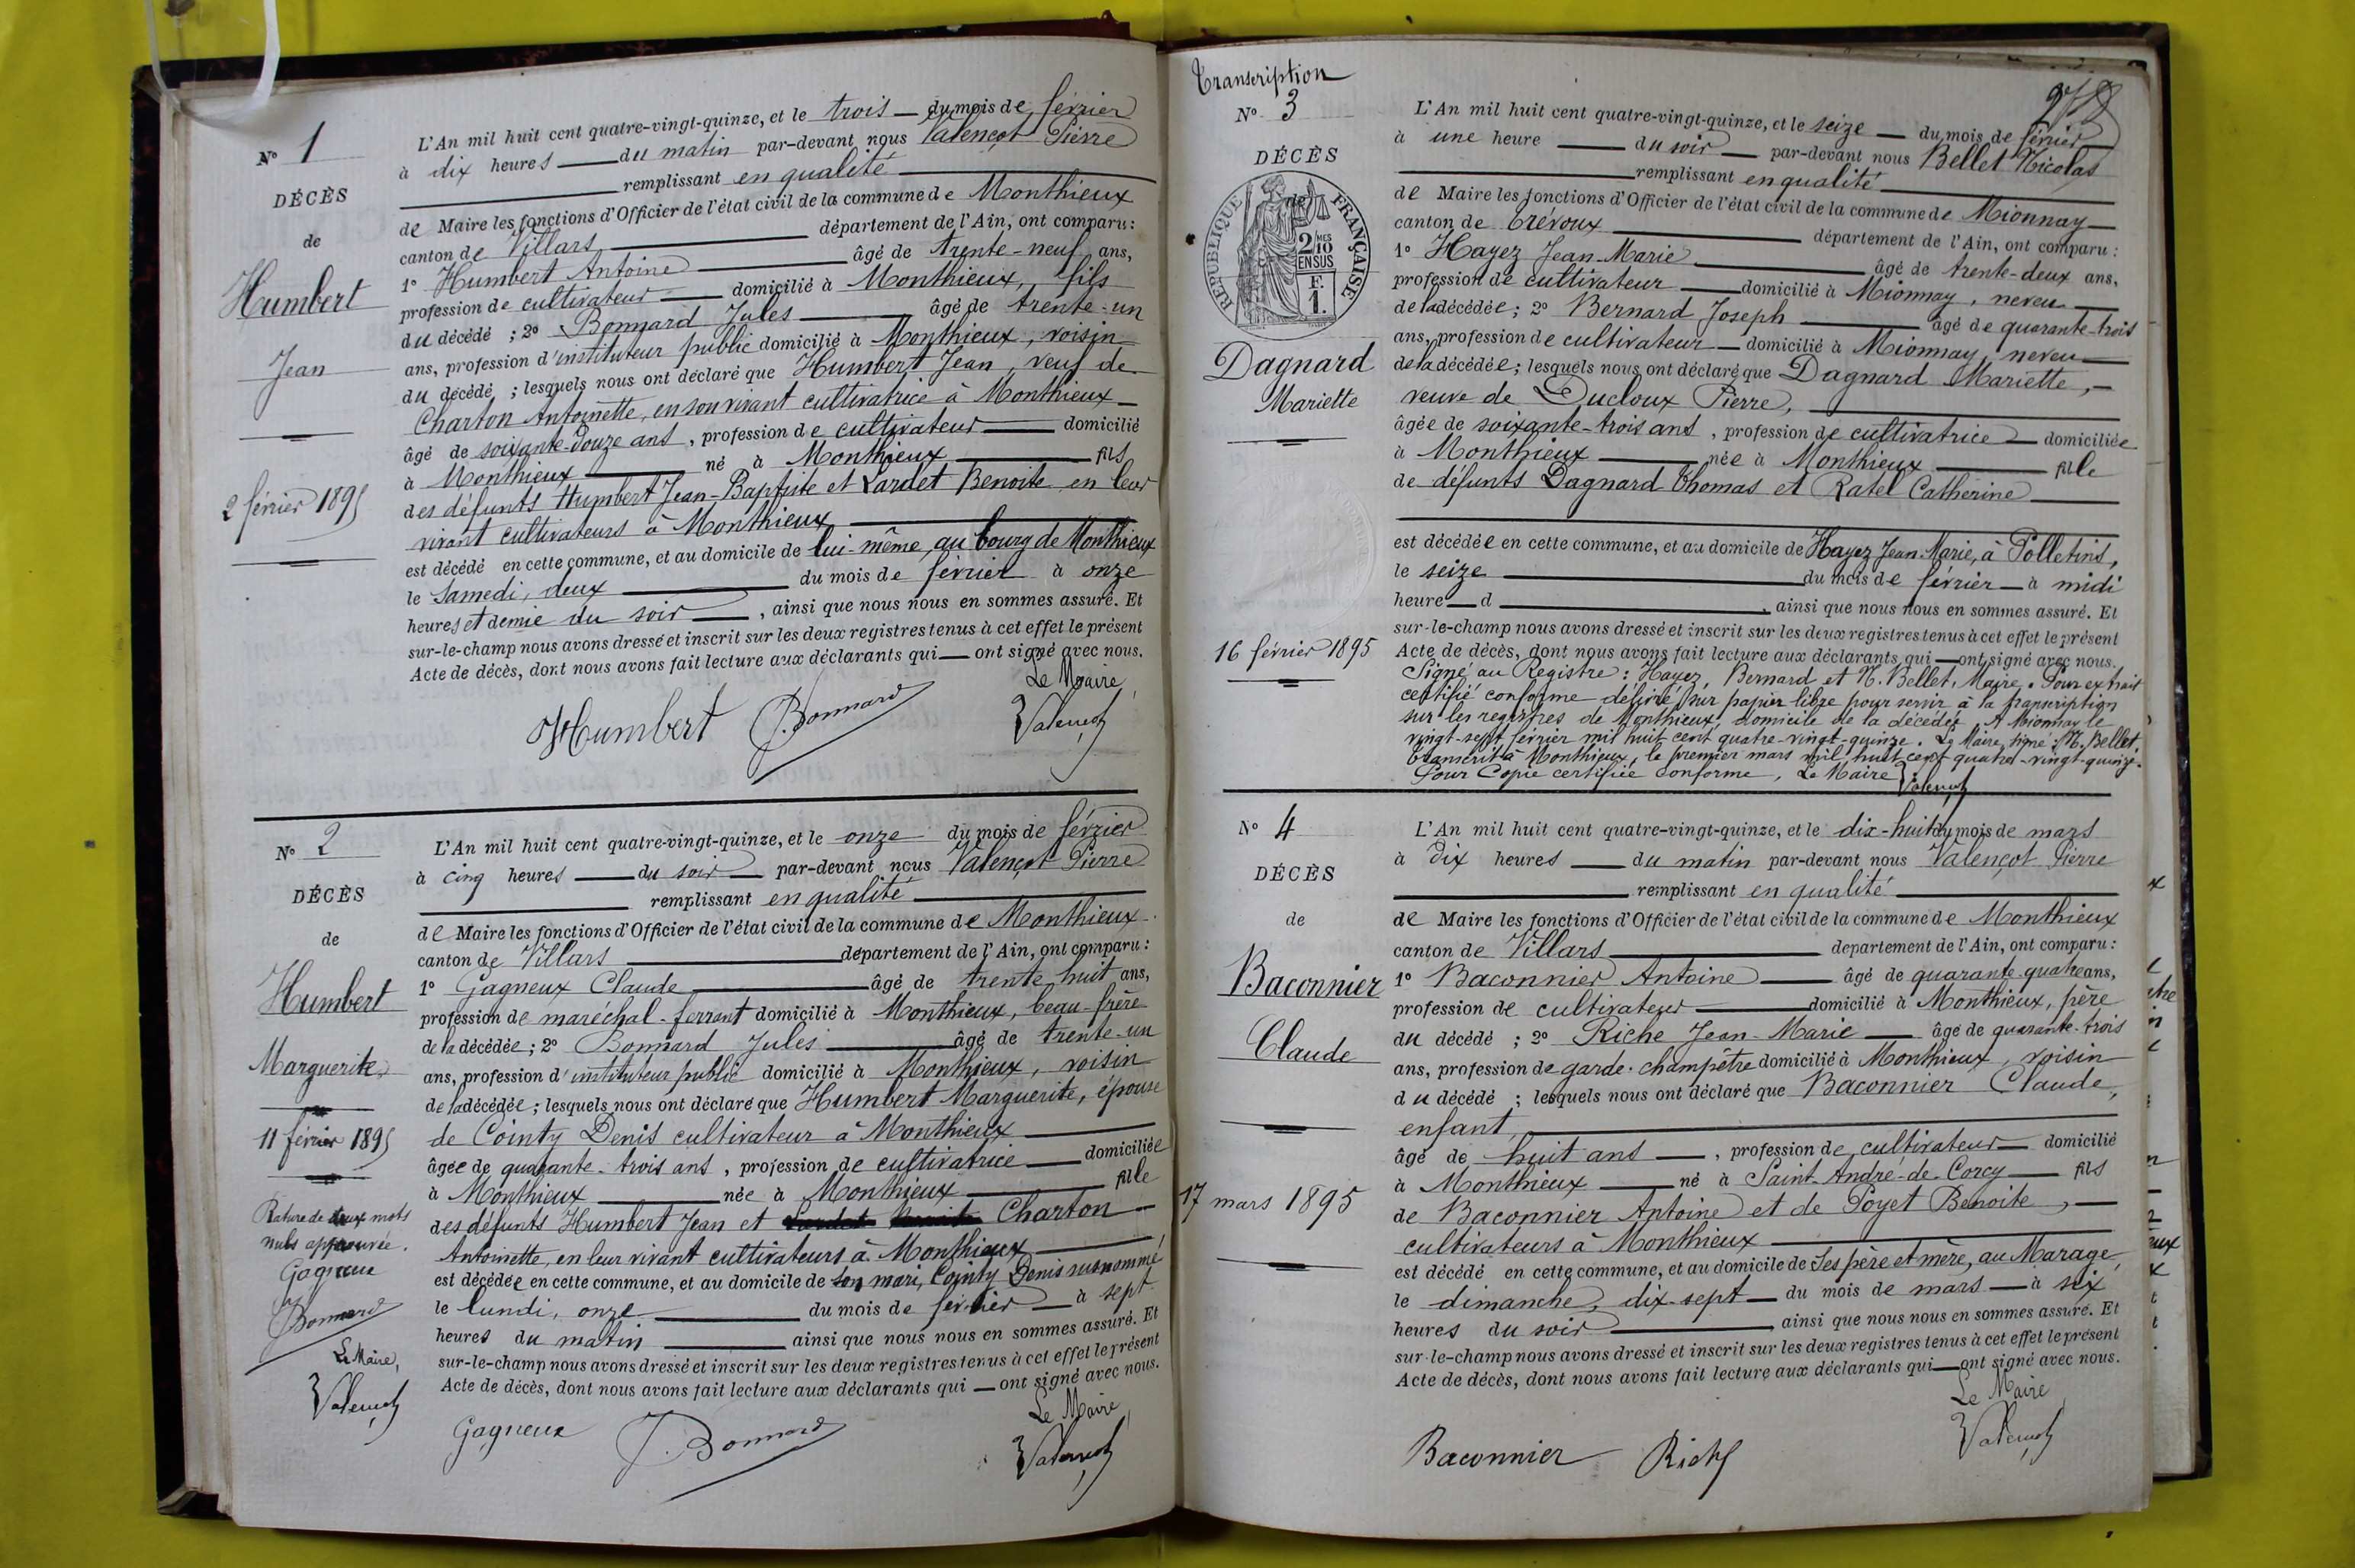 N° 1
DÉCÈS
de
Humbert
Jean
2 février 1895
L'An mil huit cent quatre-vingt-quinze, et le trois du mois de février
à dix heures du matin par-devant nous Valençot Pierre
remplissant en qualité
de Maire les fonctions d'Officier de l'état civil de la commune de Monthieux
canton de Villars département de l'Ain, ont comparu :
1° Humbert Antoine âgé de trente-neuf ans,
profession de cultivateur domicilié à Monthieux, fils
du décédé ; 2° Bonnard Jules âgé de trente-un
ans, profession d'instituteur public domicilié à Monthieux, voisin
du décédé ; lesquels nous ont déclaré que Humbert Jean, veuf de
Charton Antoinette, en son vivant cultivatrice à Monthieux
âgé de soixante-douze ans, profession de cultivateur domicilié
à Monthieux né à Monthieux fils
des défunts Humbert Jean-Baptiste et Lardet Benoite en leur
vivant cultivateurs à Monthieux
est décédé en cette commune, et au domicile de lui-même au bourg de Monthieux
le Samedi, deux du mois de février à onze
heures et demie du soir, ainsi que nous nous en sommes assuré. Et
sur-le-champ nous avons dressé et inscrit sur les deux registres tenus à cet effet le présent
Acte de décès, dont nous avons fait lecture aux déclarants qui ont signé avec nous.
Le Maire,
Humbert J. Bonnard Valençot
N° 2
DÉCÈS
de
Humbert
Marguerite
11 février 1895
Rature de deux mots
nuls approuvée.
Gagneux
Bonnard
Le Maire,
Valençot
L'An mil huit cent quatre-vingt-quinze, et le onze du mois de février
à cinq heures du soir par-devant nous Valençot Pierre
remplissant en qualité
de Maire les fonctions d'Officier de l'état civil de la commune de Monthieux
canton de Villars département de l'Ain, ont comparu :
1° Gagneux Claude âgé de trente huit ans,
profession de maréchal-ferrant domicilié à Monthieux, beau-frère
de la décédée ; 2° Bonnard Jules âgé de trente-un
ans, profession d'instituteur public domicilié à Monthieux, voisin
de la décédée ; lesquels nous ont déclaré que Humbert Marguerite, épouse
de Cointy Denis cultivateur à Monthieux
âgée de quarante-trois ans, profession de cultivatrice domiciliée
à Monthieux née à Monthieux fille
des défunts Humbert Jean et Charton
Antoinette, en leur vivant cultivateurs à Monthieux
est décédée en cette commune, et au domicile de son mari, Cointy Denis susnommé
le lundi, onze du mois de février à sept
heures du matin ainsi que nous nous en sommes assuré. Et
sur-le-champ nous avons dressé et inscrit sur les deux registres tenus à cet effet le présent
Acte de décès, dont nous avons fait lecture aux déclarants qui ont signé avec nous.
Le Maire,
Gagneux J. Bonnard Valençot
Transcription
N° 3
DÉCÈS
de
RÉPUBLIQUE FRANÇAISE
2/10 MES
EN SUS
F.
1.
Dagnard
Mariette
16 février 1895
L'An mil huit cent quatre-vingt-quinze, et le seize du mois de février
à une heure du soir par-devant nous Bellet Nicolas
remplissant en qualité
de Maire les fonctions d'Officier de l'état civil de la commune de Mionnay
canton de Trévoux département de l'Ain, ont comparu :
1° Hayez Jean-Marie âgé de trente-deux ans,
profession de cultivateur domicilié à Mionnay, neveu
de la décédée ; 2° Bernard Joseph âgé de quarante-trois
ans, profession de cultivateur domicilié à Mionnay, neveu
de la décédée ; lesquels nous ont déclaré que Dagnard Mariette,
veuve de Ducloux Pierre,
âgée de soixante-trois ans, profession de cultivatrice domiciliée
à Monthieux née à Monthieux fille
de défunts Dagnard Thomas et Ratel Catherine
est décédée en cette commune, et au domicile de Hayez Jean-Marie, à Polletins,
le seize du mois de février à midi
heure d , ainsi que nous nous en sommes assuré. Et
sur-le-champ nous avons dressé et inscrit sur les deux registres tenus à cet effet le présent
Acte de décès, dont nous avons fait lecture aux déclarants qui ont signé avec nous.
Signé au Registre : Hayez, Bernard et N. Bellet, Maire. Pour extrait
certifié conforme délivré sur papier libre pour servir à la transcription
sur les registres de Monthieux, domicile de la décédée. A Mionnay le
vingt-sept février mil huit cent quatre-vingt-quinze. Le Maire, signé : N. Bellet.
Transcrit à Monthieux, le premier mars mil huit cent quatre-vingt-quinze.
Pour Copie certifiée conforme, Le Maire : Valençot
N° 4
DÉCÈS
de
Baconnier
Claude
17 mars 1895
L'An mil huit cent quatre-vingt-quinze, et le dix-huit du mois de mars
à dix heures du matin par-devant nous Valençot Pierre
remplissant en qualité
de Maire les fonctions d'Officier de l'état civil de la commune de Monthieux
canton de Villars département de l'Ain, ont comparu :
1° Baconnier Antoine âgé de quarante-quatre ans,
profession de cultivateur domicilié à Monthieux, père
du décédé ; 2° Riche Jean-Marie âgé de quarante-trois
ans, profession de garde-champêtre domicilié à Monthieux, voisin
du décédé ; lesquels nous ont déclaré que Baconnier Claude,
enfant,
âgé de huit ans, profession de cultivateur domicilié
à Monthieux né à Saint-André-de-Corcy fils
de Baconnier Antoine et de Poyet Benoite,
cultivateurs à Monthieux
est décédé en cette commune, et au domicile de Ses père et mère, au Marage,
le dimanche, dix-sept du mois de mars à six
heures du soir ainsi que nous nous en sommes assuré. Et
sur-le-champ nous avons dressé et inscrit sur les deux registres tenus à cet effet le présent
Acte de décès, dont nous avons fait lecture aux déclarants qui ont signé avec nous.
Le Maire
Baconnier Riche Valençot